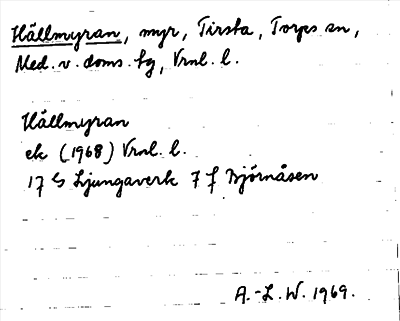 Hällmyran, myr, Tirsta, Torps sn,
Med. v. doms. fg, Vrnl. l.
Hällmyran
ek (1968) Vrnl. l.
17 G Ljungaverk 7 f Björnåsen
A.-L. W. 1969.